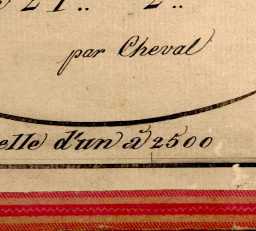 par Cheval
elle d'un à 2500